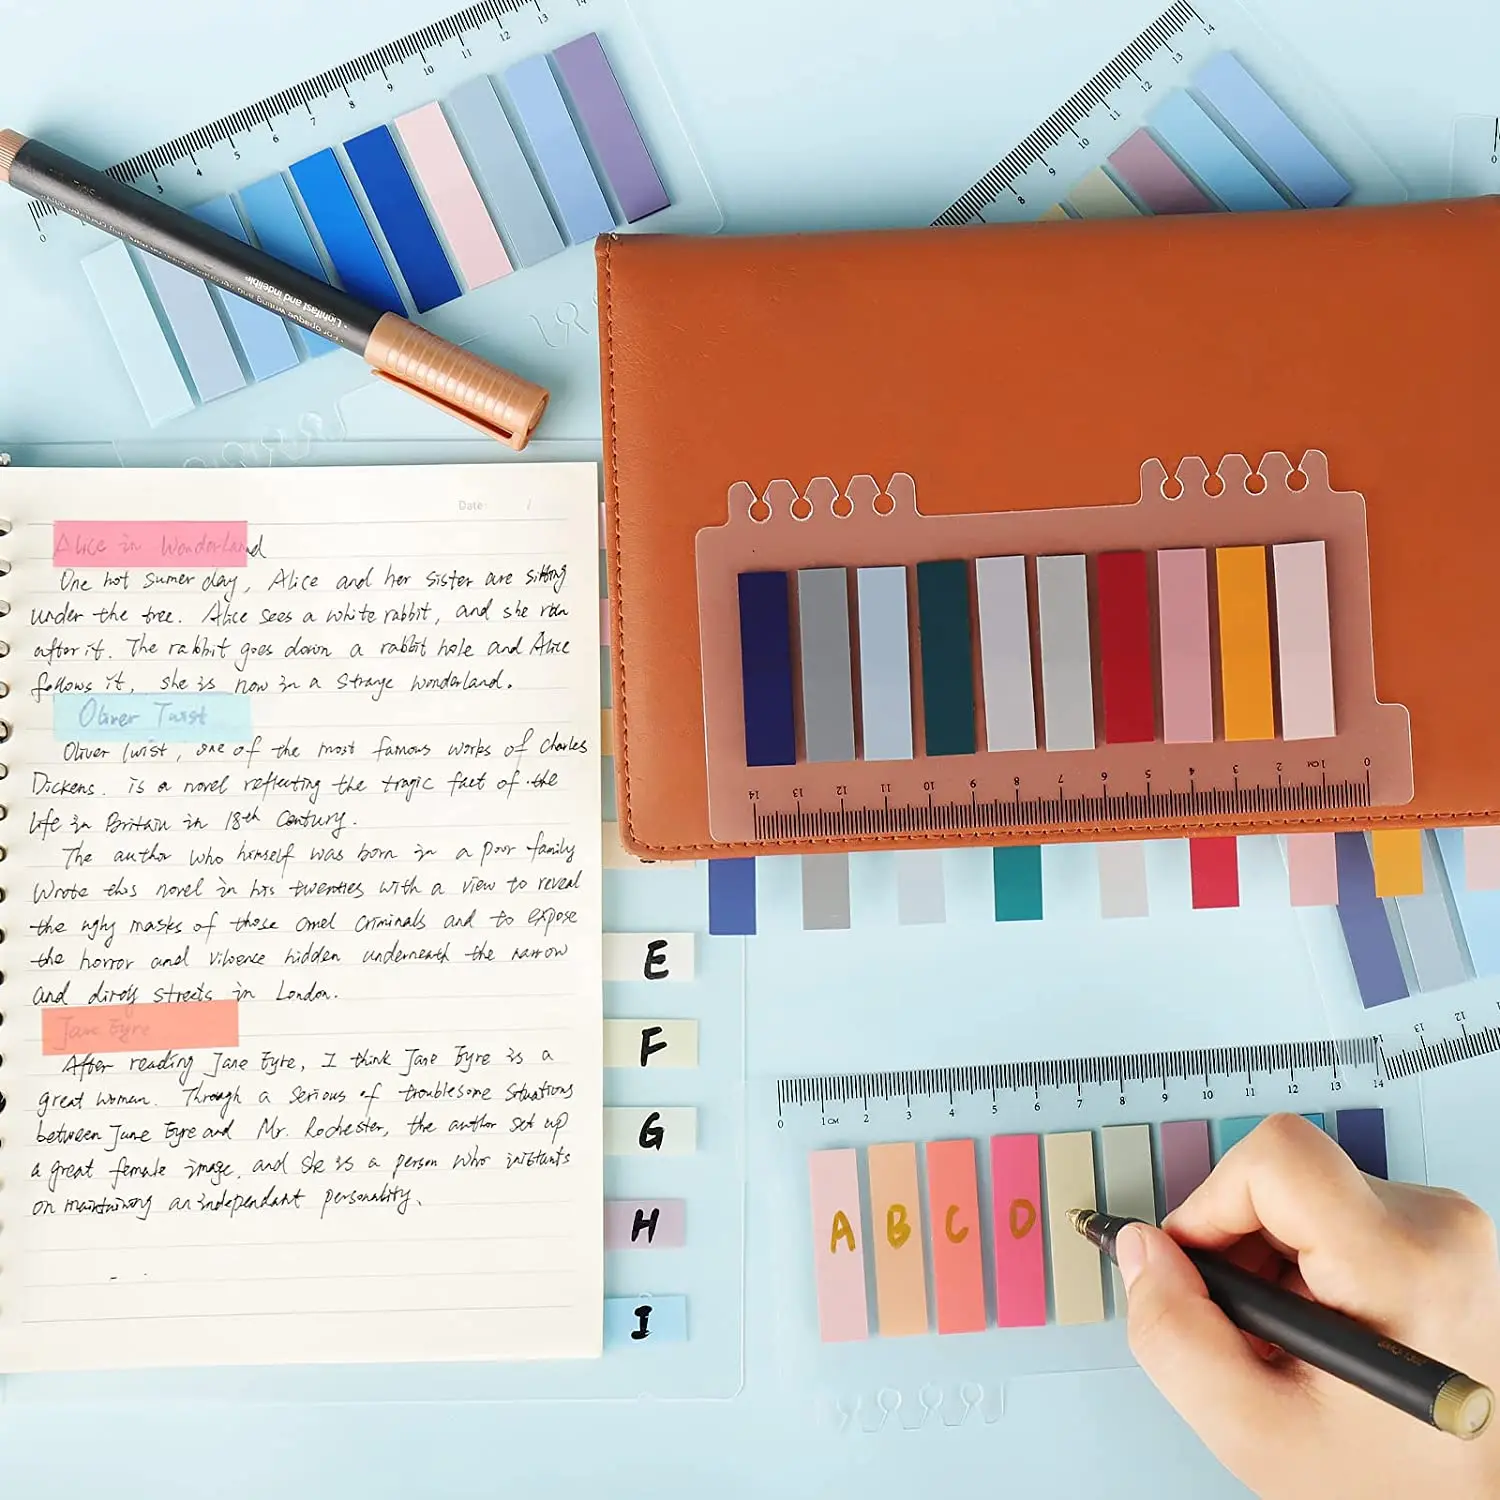 Date: /
Alice in Wonderland
One hot sumer day, Alice and her sister are sitting
under the tree. Alice sees a white rabbit, and she run
after it. The rabbit goes down a rabbit hole and Alice
follows it, she is now in a strange wonderland.
Oliver Twist
Oliver Twist, one of the most famous works of Charles
Dickens. is a novel reflecting the tragic fact of the
life in Britain in 18th Century.
The author who himself was born in a poor family
Wrote this novel in his twenties with a view to reveal
the ugly masks of those cruel criminals and to expose
the horror and violence hidden underneath the narrow
and dirty streets in London.
Jane Eyre
After reading Jane Eyre, I think Jane Eyre is a
great woman. Through a serious of troublesome situations
between Jane Eyre and Mr. Rochester, the author set up
a great female image, and she is a person who
on maintaining an independent personality.
E
F
G
H
I
0 3 4 5 6 7 8 9 10 11 12 13 14
8 9 10 11 12 13 14
14 13 12 11 10 9 8 7 6 5 4 3 2 1CM 0
0 1CM 2 3 4 5 6 7 8 9 10 11 12 13 14
14 13 12
A B C D
• Lightfast and indelible
• For opaque writing and